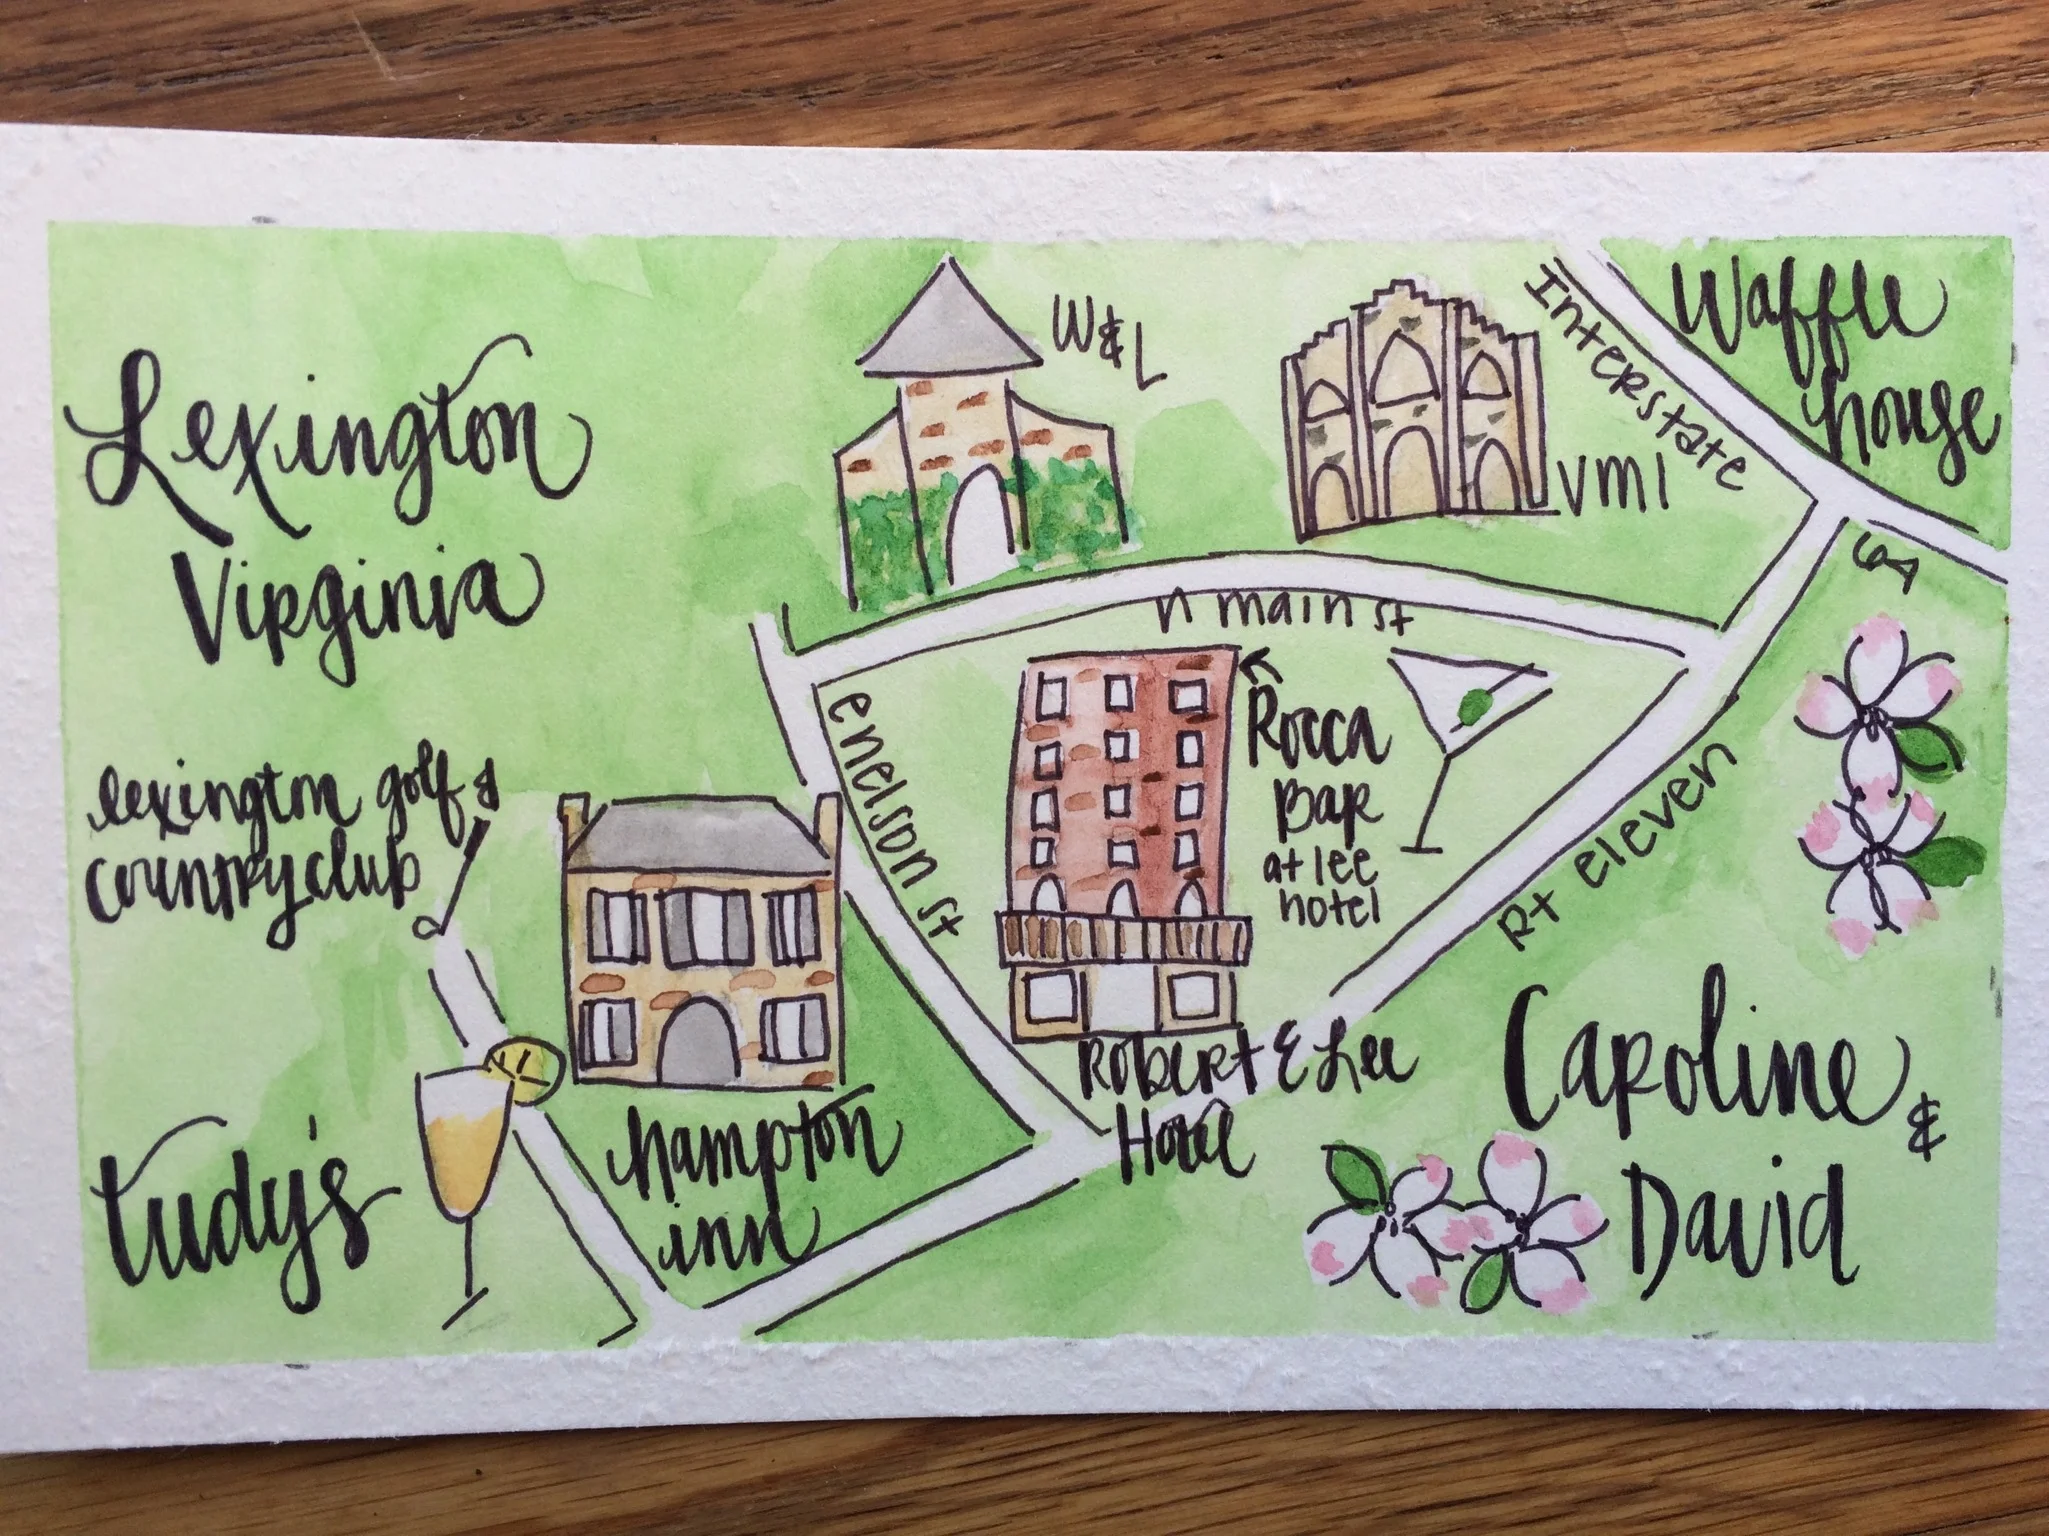 Lexington
Virginia
W & L
VMI
Interstate
64
Waffle
house
n main st
enelson st
Rocca
Bar
at lee
hotel
Rt eleven
lexington golf &
country club
hampton
inn
Robert E Lee
Hotel
tudy's
Caroline &
David